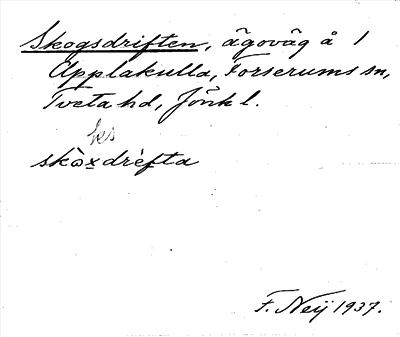 Skogsdriften, ägoväg å 1
Applakulla, Forserums sn,
Tveta hd, Jönk l.
ks
skòxdrèfta
F. Neij 1937.